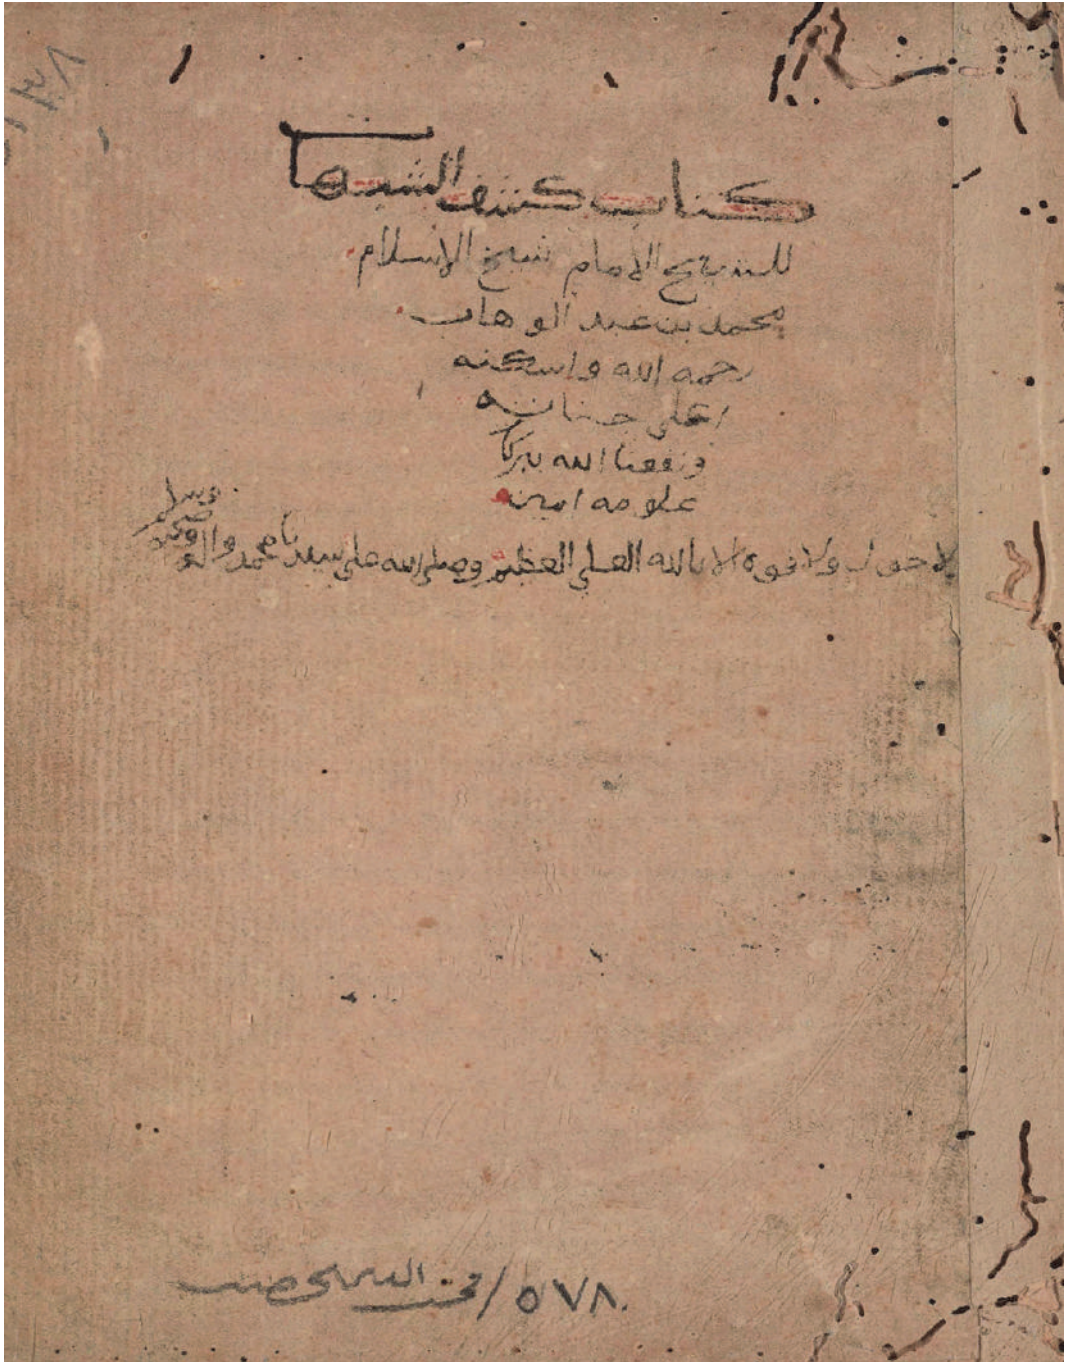 كتاب كشف الشبهات
للشيخ الامام شيخ الاسلام
محمد بن عبد الوهاب
رحمه الله واسكنه
اعلى جنانه
ونفعنا الله ببركا
علومه امين
لا حول ولا قوة الا بالله العلي العظيم وصلى الله على سيدنا محمد واله وصحبه وسلم
٥٧٨